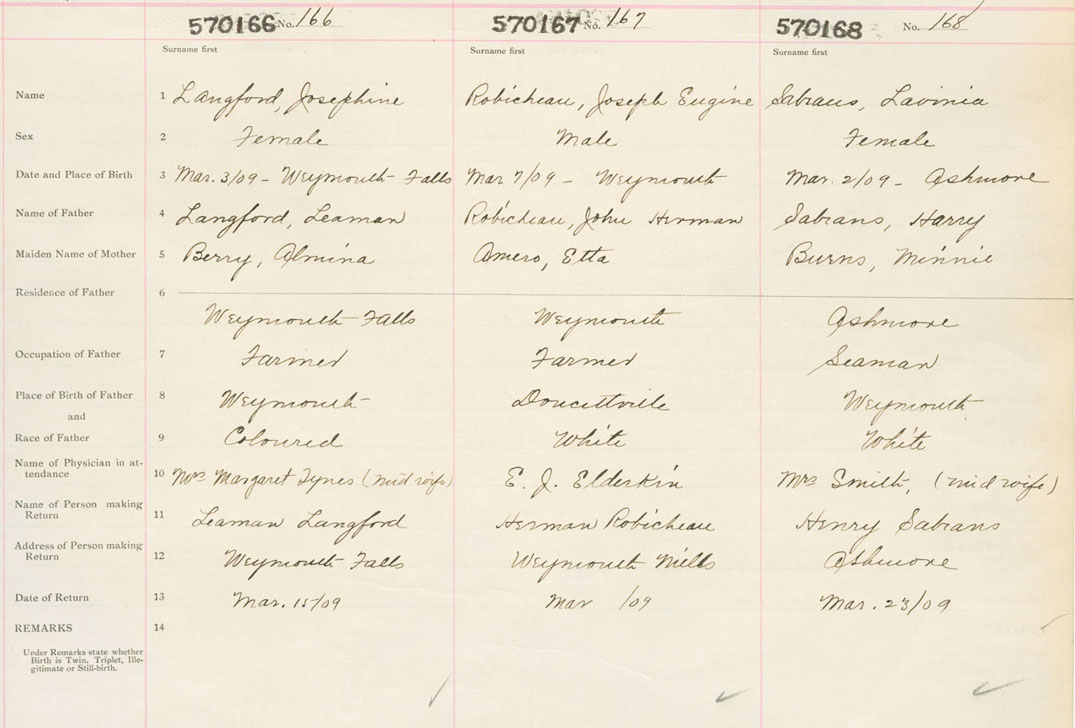 570166 No. 166 570167 No. 167 570168 No. 168
Surname first Surname first Surname first
Name 1 Langford, Josephine Robicheau, Joseph Eugine Sabrans, Lavinia
Sex 2 Female Male Female
Date and Place of Birth 3 Mar. 3/09 - Weymouth Falls Mar 7/09 - Weymouth Mar. 2/09 - Ashmore
Name of Father 4 Langford, Leaman Robicheau, John Herman Sabrans, Harry
Maiden Name of Mother 5 Berry, Almina Amero, Etta Burns, Minnie
Residence of Father 6
Weymouth Falls Weymouth Ashmore
Occupation of Father 7 Farmer Farmer Seaman
Place of Birth of Father 8 Weymouth Doucettville Weymouth
and
Race of Father 9 Coloured White White
Name of Physician in at-
tendance 10 Mrs Margaret Tynes (midwife) E. J. Elderkin Mrs Smith, (midwife)
Name of Person making
Return 11 Leaman Langford Herman Robicheau Henry Sabrans
Address of Person making
Return 12 Weymouth Falls Weymouth Mills Ashmore
Date of Return 13 Mar. 15/09 Mar /09 Mar. 23/09
REMARKS 14
Under Remarks state whether
Birth is Twin, Triplet, Ille-
gitimate or Still-birth.